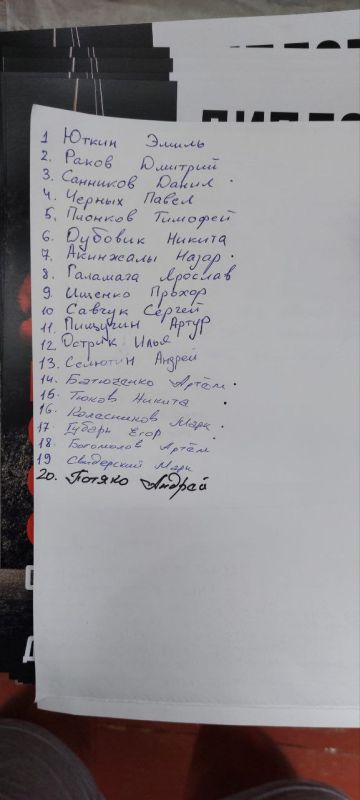 ДИПЛО
1 Юткин Эмиль
2. Раков Дмитрий
3. Санников Данил
4. Черных Павел
5. Пионков Тимофей
6. Дубовик Никита
7. Акинжалы Назар
8. Галамага Ярослав
9. Ищенко Прохор
10 Савчук Сергей
11. Пищугин Артур
12. Острик Илья
13. Селютин Андрей
14. Батюченко Артём
15. Тюков Никита
16. Колесников Марк
17. Губарь Егор
18. Богомолов Артём
19 Свидерский Марк
20. Потяко Андрей